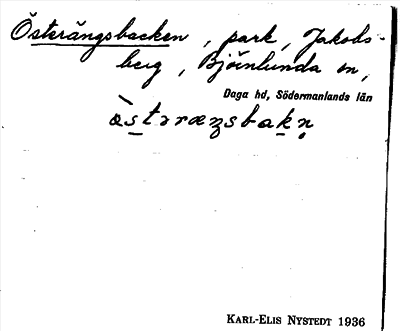 Österängsbacken, park, Jakobs-
berg, Björnlunda sn,
Daga hd, Södermanlands län
KARL-ELIS NYSTEDT 1936